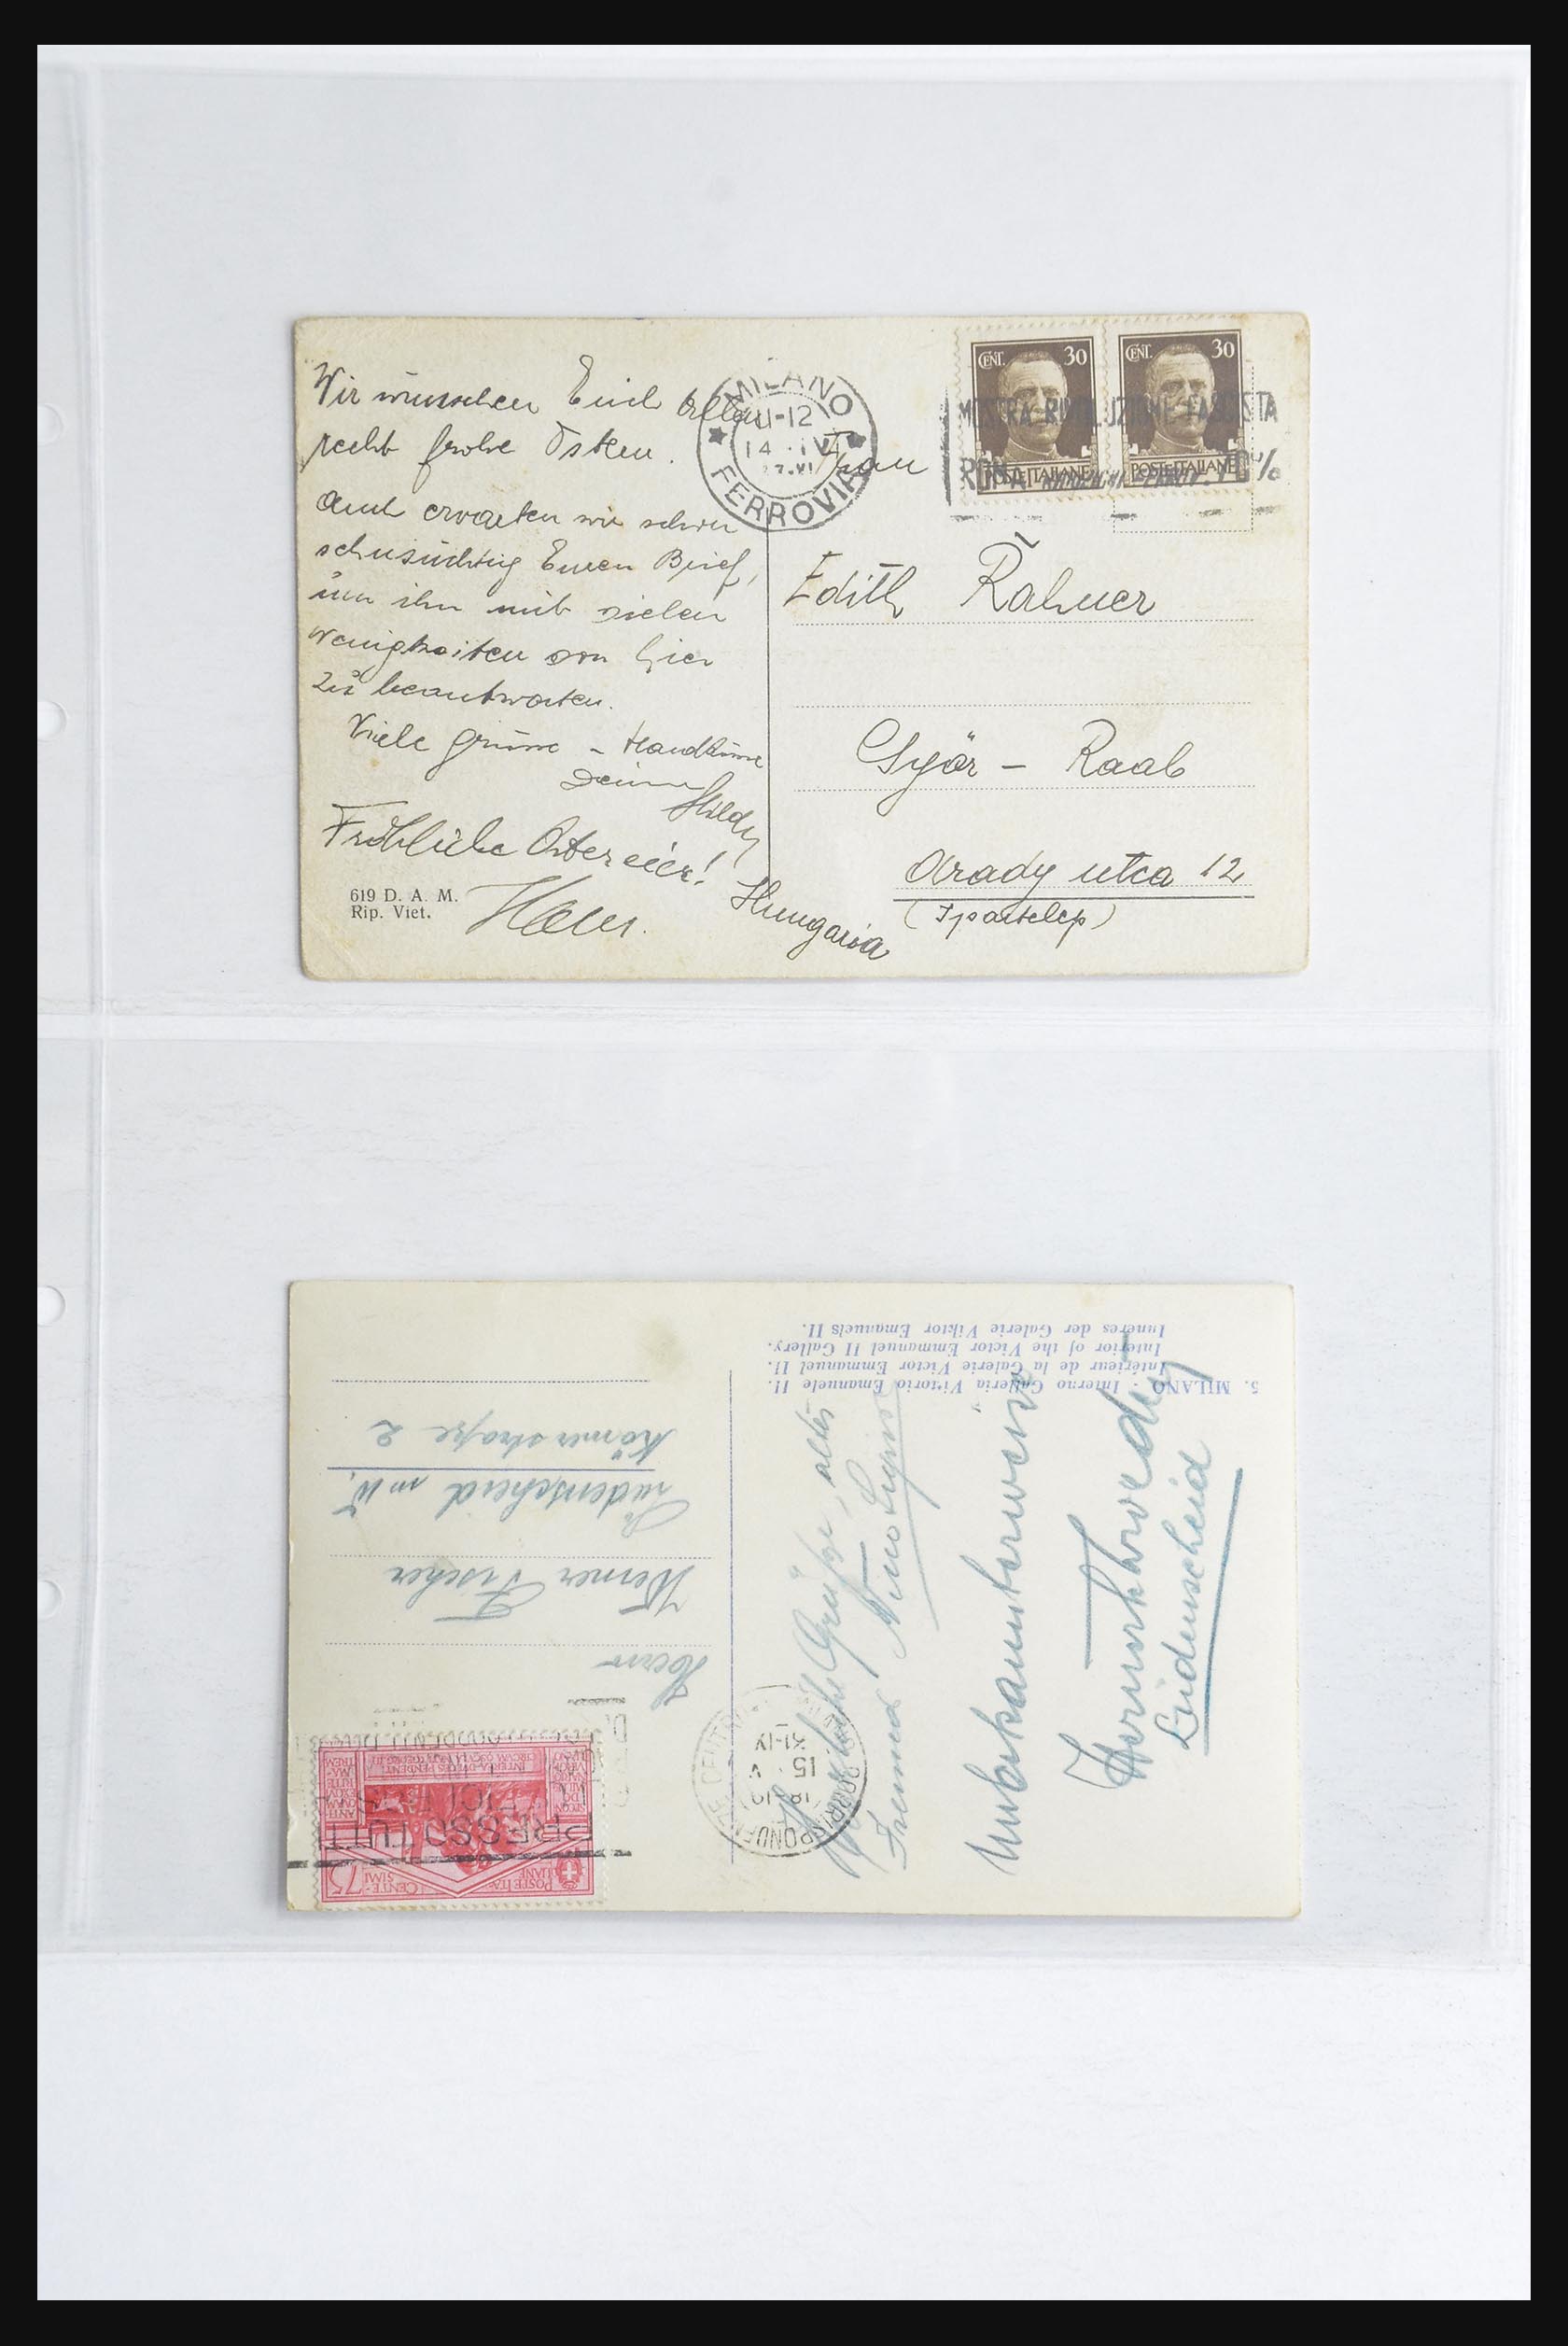 Wir wünschen Euch Allen
recht frohe Ostern.
Auch erwarten wir schon
sehnsüchtig Euren Brief,
um ihn mit vielen
Wenigkeiten von hier
zu beantworten.
Viele Grüsse – Handküsse
Deine Hildy
Fröhliche Ostereier!
Hans.
619 D. A. M.
Rip. Viet.
MILANO
11-12
14 · IV
FERROVIA
CENT. 30
POSTE ITALIANE
CENT. 30
POSTE ITALIANE
MOSTRA RIVOLUZIONE FASCISTA
ROMA 70%
Frau
Edith Rahner
Györ – Raab
Arady utca 12
(Ipartelep)
Hungaria
5. MILANO - Interno Galleria Vittorio Emanuele II.
Intérieur de la Galerie Victor Emanuel II.
Interior of the Victor Emmanuel II Gallery.
Inneres der Galerie Viktor Emanuels II.
Herrn
Werner Fischer
Lüdenscheid i/W.
Körnerstraße 2
Herzliche Grüße, alter
Freund
Unbekannterweise
Lüdenscheid
POSTE ITALIANE
CENTESIMI 75
18-19
15 · V
31-IX